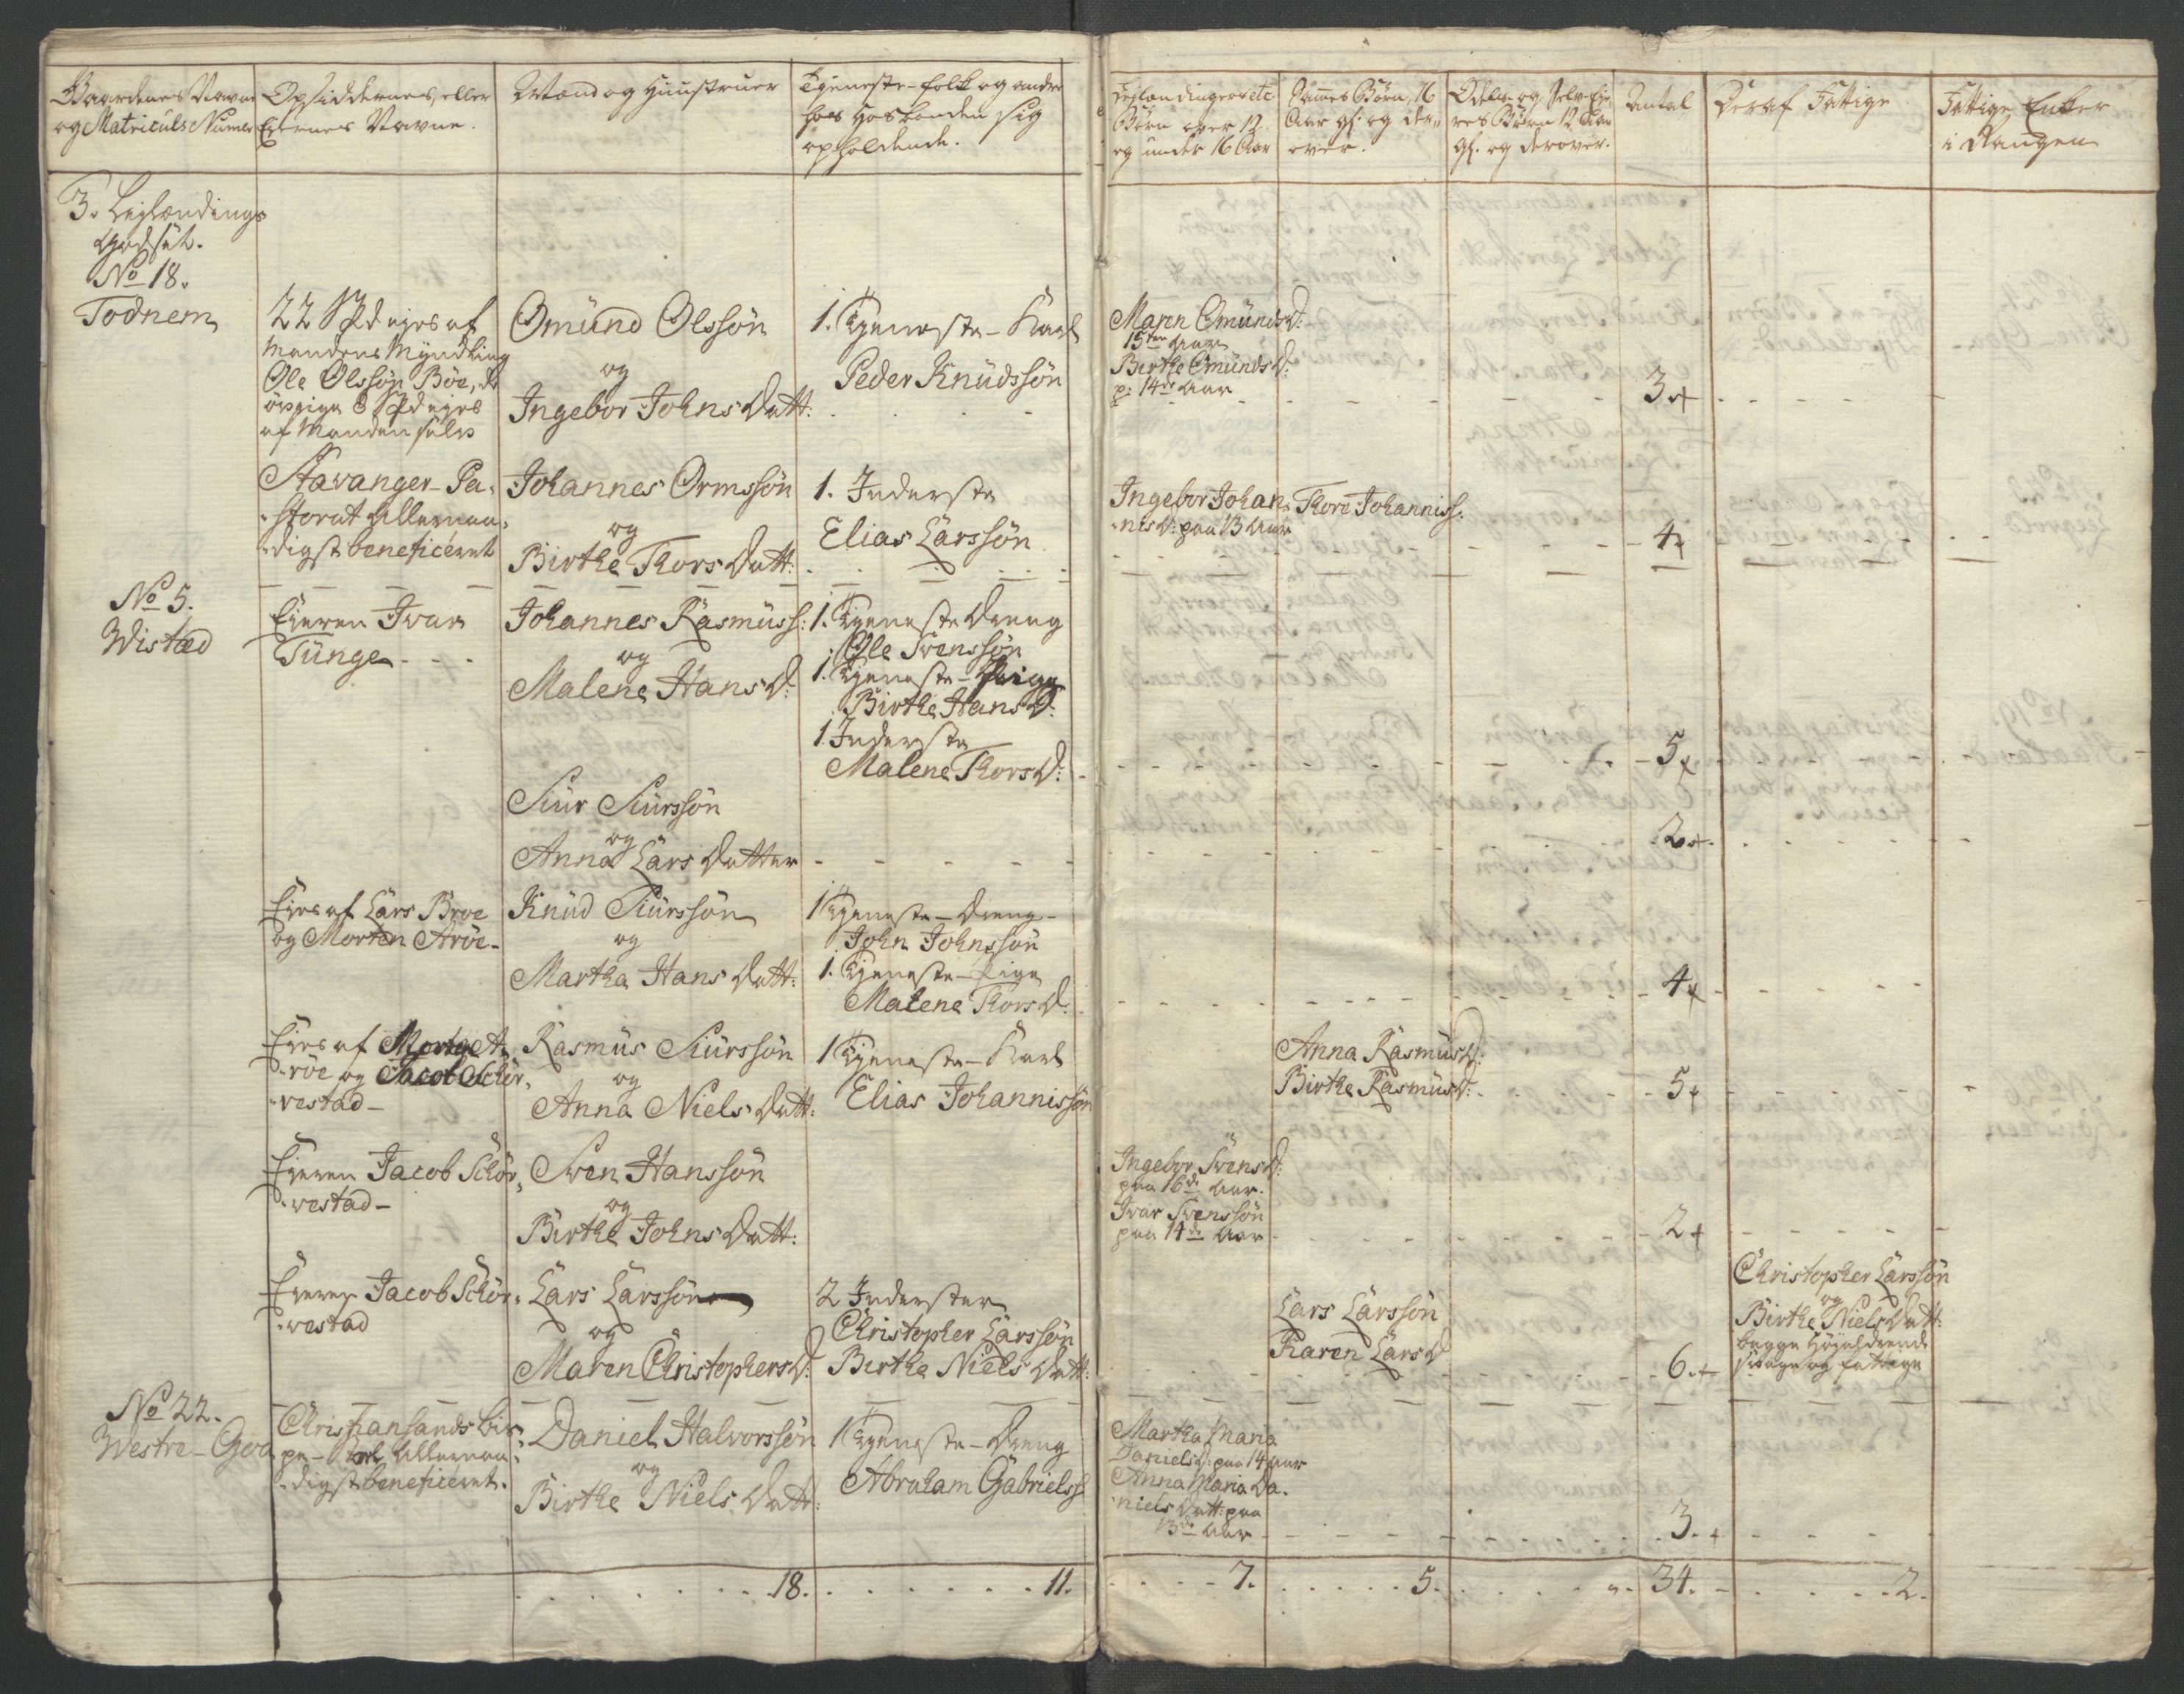 Gaardenes Navne
og Matriculs Numer
Opsiddernes, eller
Eiernes Navne.
Mænd og Hustruer
Tjeneste-folk og andre
hos Hosbonden sig
opholdende.
Leylændingers etc
Børn over 12
og under 16 Aar
Sammes Børn, 16
Aar gl: og der-
over.
Odels- og Selv-Eie-
res Børn 12 Aar
gl. og derover.
Antal
Deraf Fattige
Fattige Enker
i Rangen
3. Leylændings
Godset.
No 18.
Todnem
22 Spd ejes af
Mandens Myndling
Ole Olssøn Böe, de
övrige 8 Spd ejes
af Manden selv
Omünd Olssøn
og
Ingebor Johns Datt:
1. Tjeneste-Karl
Peder Knüdssøn
Maren Omünds D:
15ten Aar
Birthe Omünds D:
p: 14de Aar
3
Stavanger-Pa-
storat allernaa-
digst beneficeret
Johannes Ormssøn
og
Birthe Thors Datt:
1. Inderste
Elias Larssøn
Ingebor Johan-
nis D: paa 13 Aar
Thore Johanniss:
4
No 5.
Wistad
Eieren Ivar
Tünge
Johannes Rasmüss:
og
Malene Hans D:
1. Tjeneste Dreng
Ole Svenssøn
1. Tjeneste-Pige
Birthe Hans D:
1. Inderste
Malene Thors D:
5
Siur Siurssøn
og
Anna Lars Datter
2
Ejes af Lars Broe
og Morten Aröe
Knüd Siurssøn
og
Martha Hans Datt:
1 Tjeneste-Dreng
John Johnssøn
1. Tjeneste-Pige
Malene Thors D:
4
Ejes af Morten A-
röe og Jacob Schör-
vestad
Rasmüs Siurssøn
og
Anna Niels Datt:
1 Tjeneste-Karl
Elias Johannissøn
Anna Rasmüs D:
Birthe Rasmüs D:
5
Eieren Jacob Schör-
vestad
Sven Hanssøn
og
Birthe Johns Datt:
Ingebor Svens D:
paa 16de Aar.
Ivar Svenssøn
paa 14de Aar
2
Eieren Jacob Schör-
vestad
Lars Larssøn
og
Maren Christophers D:
2 Inderster
Christopher Larssøn
Birthe Niels Datt:
Lars Larssøn
Karen Lars D
6
Christopher Larssøn
og
Birthe Niels Datt:
begge Höyaldrende
svage og fattige
No 22.
Westre-Goa
Christiansands Bis-
pe-Stoel allernaa-
digst beneficeret.
Daniel Halvorssøn
og
Birthe Niels Datt:
1 Tjeneste-Dreng
Abraham Gabrielss:
Martha Maria
Daniels D: paa 14 Aar
Anna Maria Da-
niels Datt: paa
13de Aar
3.
18. 11. 7. 5. 34. 2.